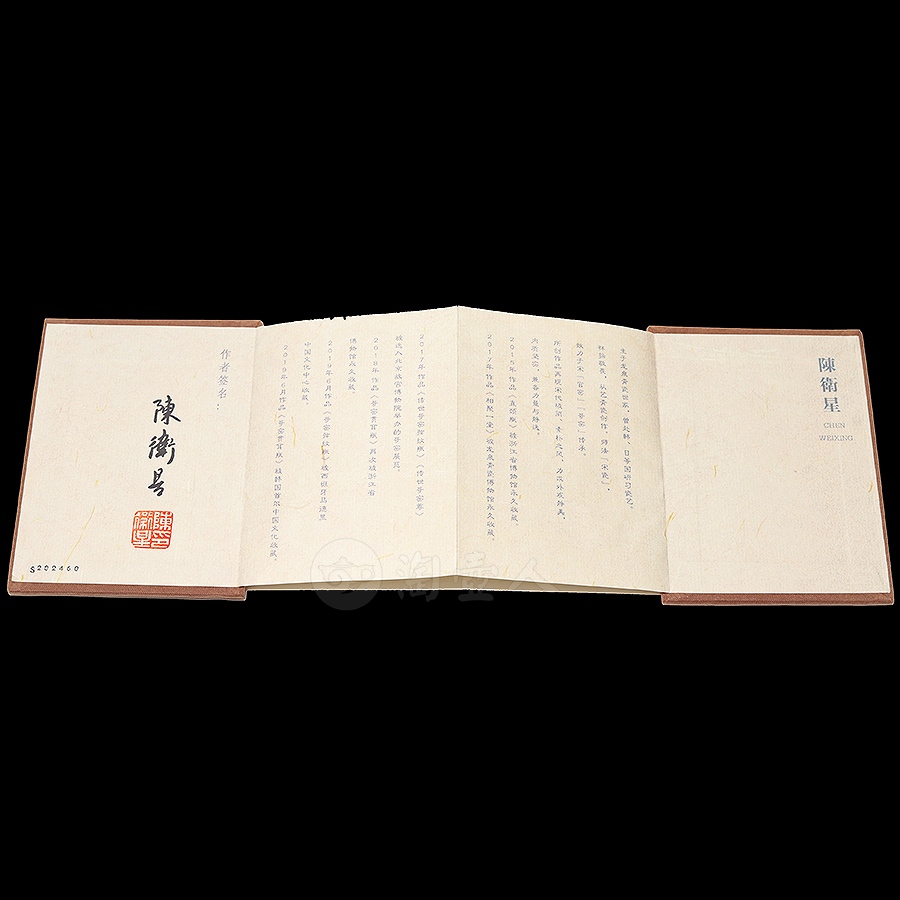 陳衛星
CHEN
WEIXING
生于龙泉青瓷世家，曾赴韩、日等国研习瓷艺。
敬畏，从艺青瓷创作，师法「宋瓷」，
致力于宋「官窑」「哥窑」传承。
所创作品再现宋代 素朴之风，力求外 静美，
内质莹 ，兼容力量与静谧。
2015年作品《直颈瓶》被浙江省博物馆永久收藏。
2017年作品《相聚一堂》被龙泉青瓷博物馆永久收藏。
2017年作品《传世哥窑弦纹瓶》《传世哥窑尊》
被选入北京故宫博物院举办的哥窑展览。
2018年作品《哥窑贯耳瓶》再次被浙江省
博物馆永久收藏。
2019年6月作品《哥窑弦纹瓶》被西班牙马德里
中国文化中心收藏。
2019年6月作品《哥窑贯耳瓶》被韩国首尔中国文化收藏。
作者签名：
陳衛星
陳衛星印
S202460
淘壶人